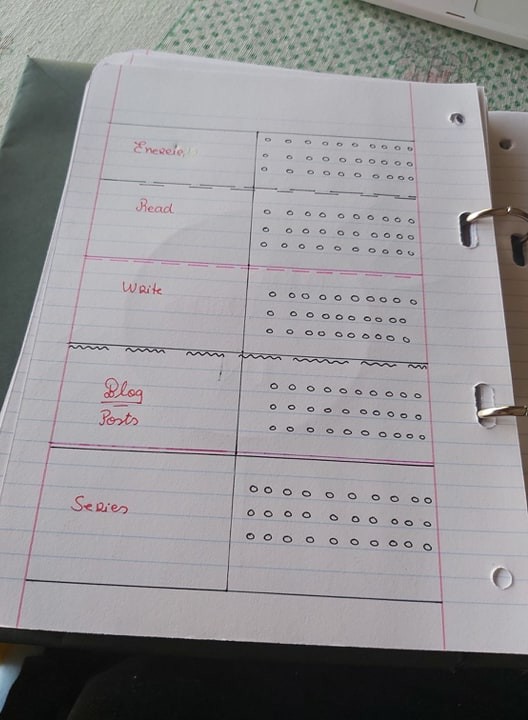 Read
Write
Blog
Posts
Series